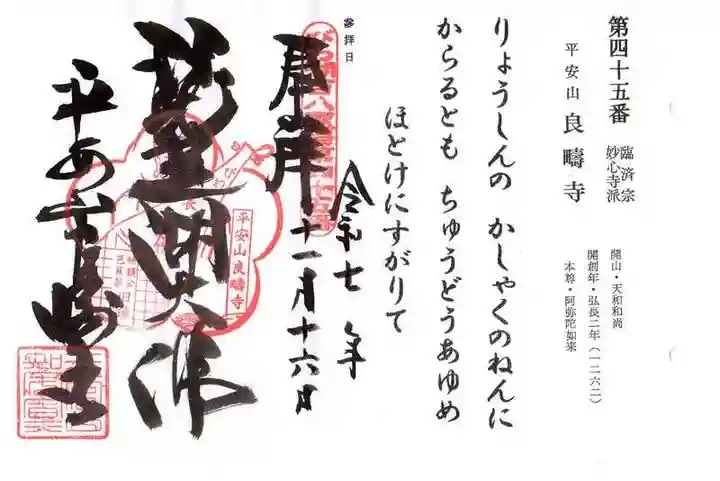 第四十五番 臨済宗
妙心寺派
平安山 良疇寺
開山・天和和尚
開創年・弘長二年(一二六二)
本尊・阿弥陀如来
りょうしんの かしゃくのねんに
からるとも ちゅうどうあゆめ
ほとけにすがりて
参拝日
令和七年
十一月十六日
琵琶湖大佛
平安山良疇寺
平安山良疇寺
びわ
長